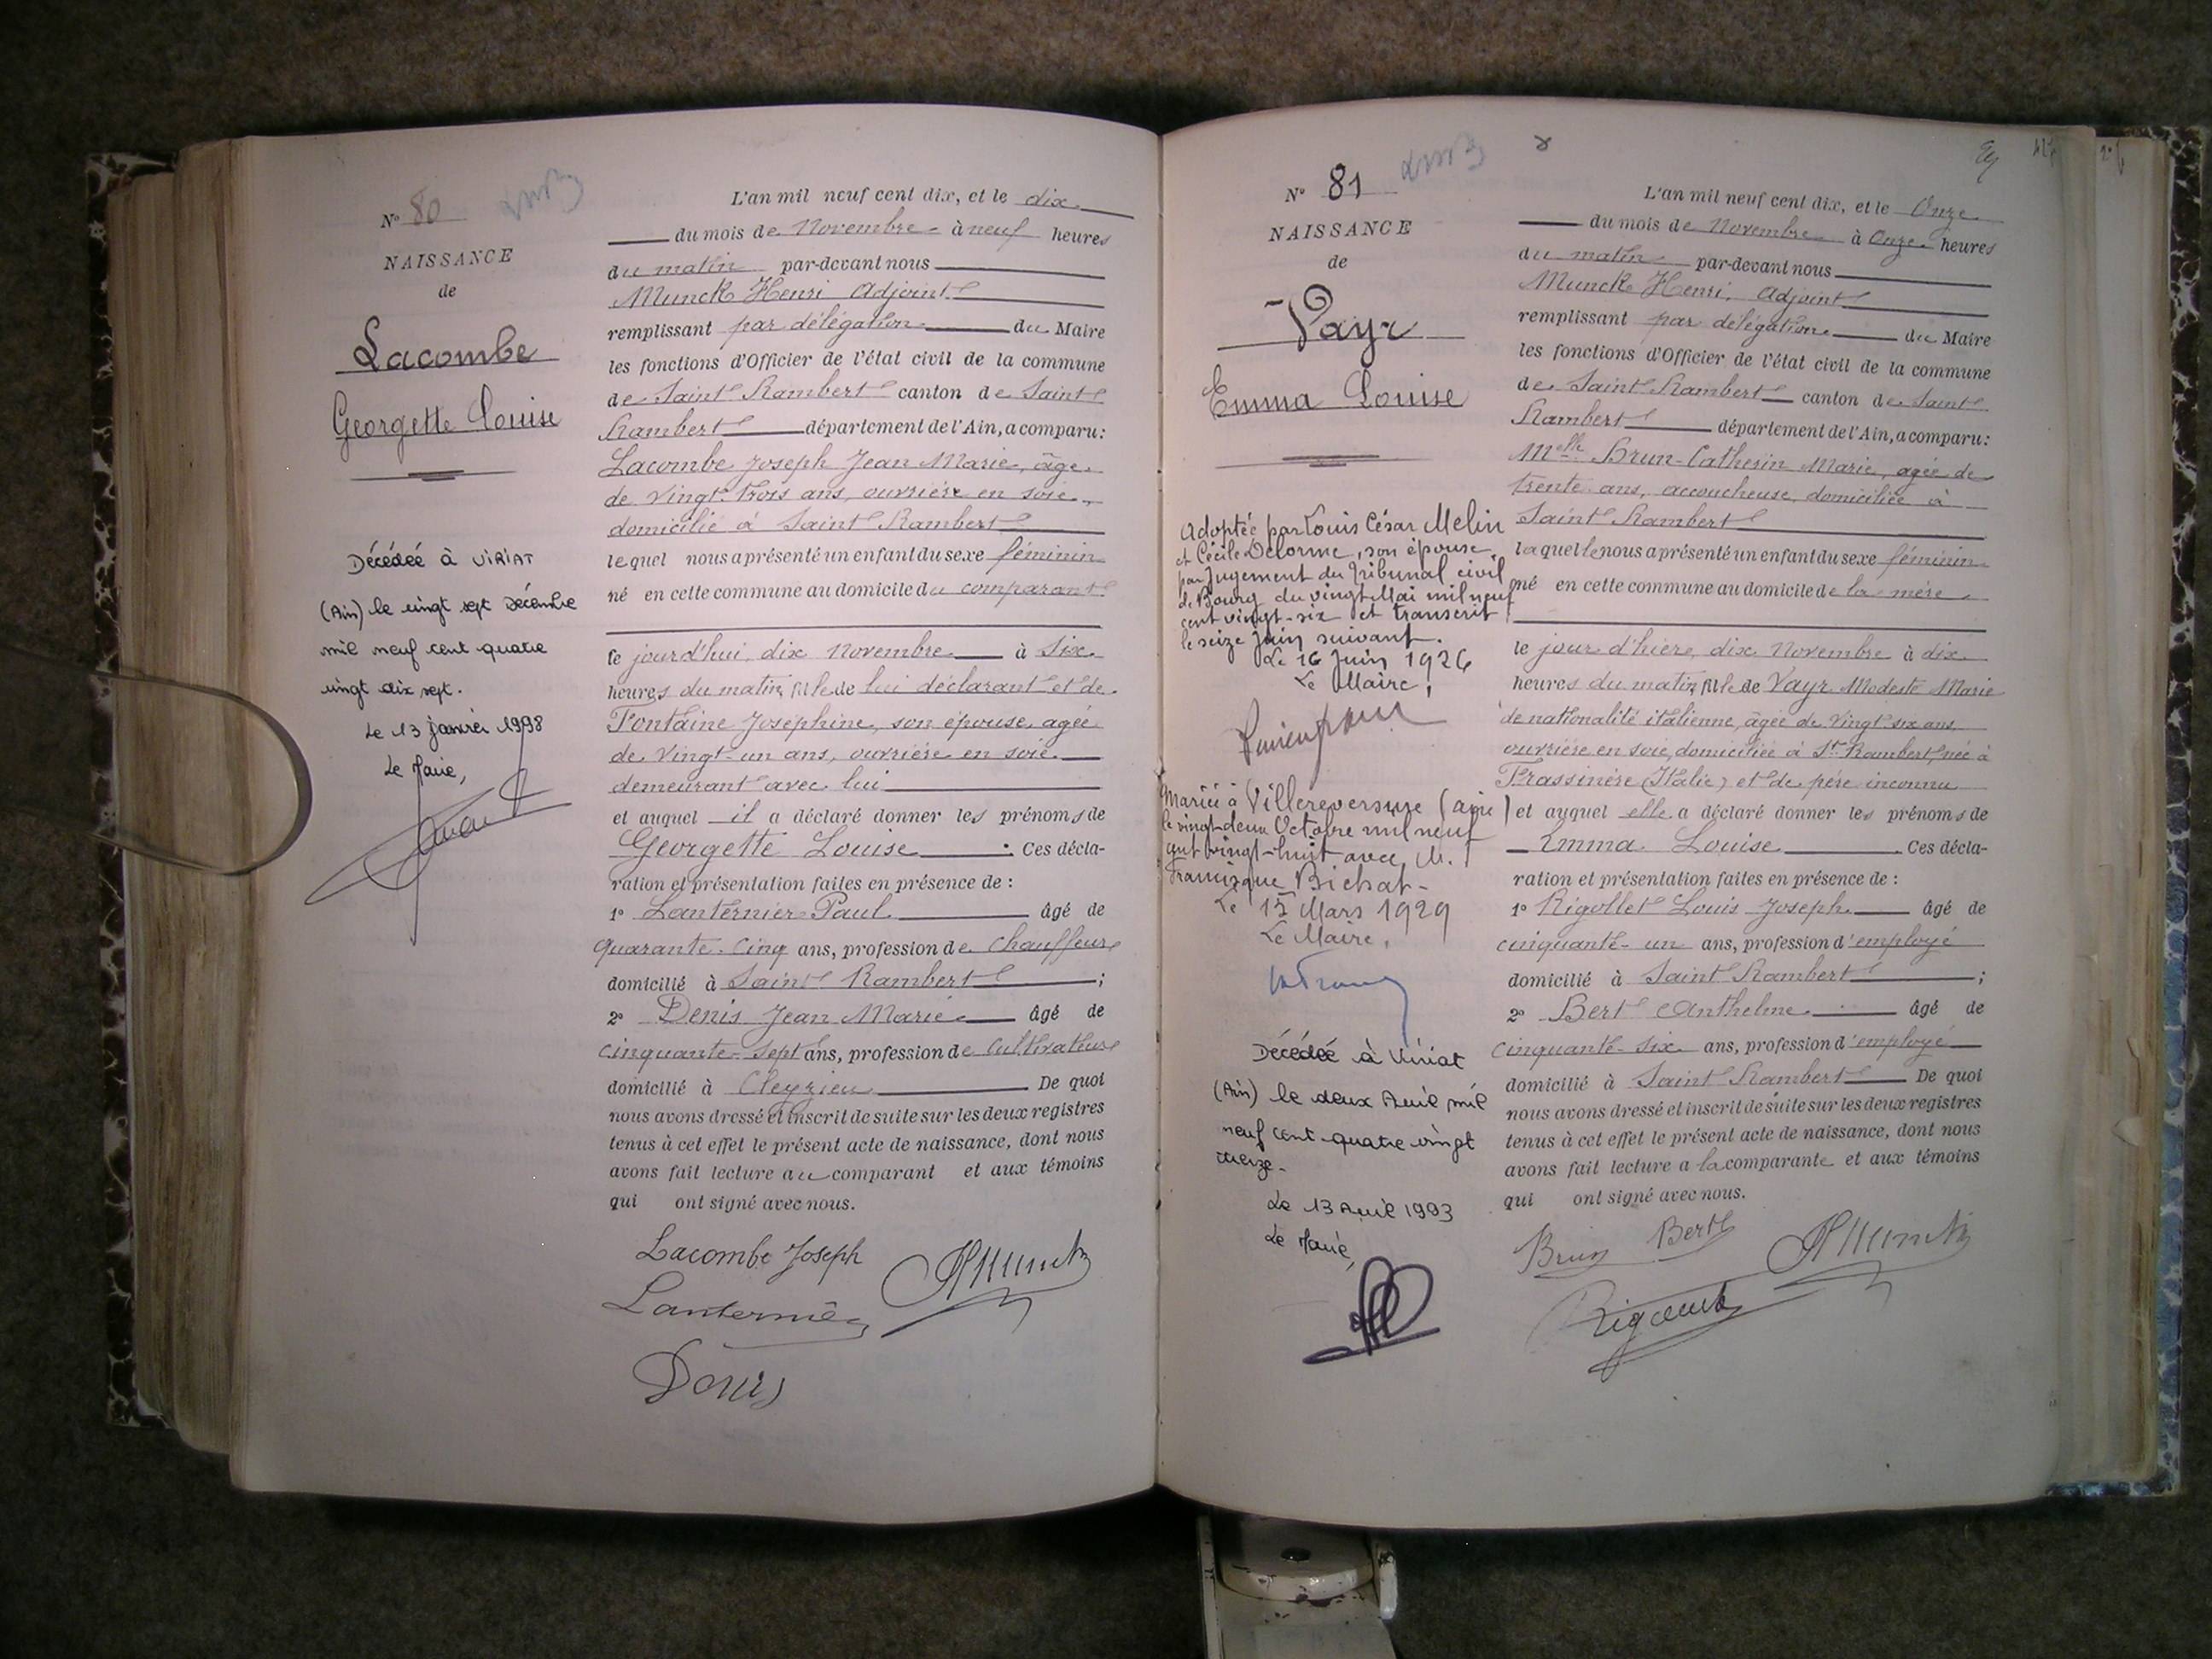 N° 80
NAISSANCE
de
Lacombe
Georgette Louise
Décédée à VIRIAT
(Ain) le vingt sept Décembre
mil neuf cent quatre
vingt dix sept.
Le 13 janvier 1998
Le Maire,
L'an mil neuf cent dix, et le dix
du mois de Novembre à neuf heures
du matin par-devant nous
Munck Henri Adjoint
remplissant par délégation du Maire
les fonctions d'Officier de l'état civil de la commune
de Saint Rambert canton de Saint
Rambert département de l'Ain, a comparu:
Lacombe Joseph Jean Marie, âgé
de vingt-trois ans, ouvrière en soie,
domicilié à Saint Rambert
lequel nous a présenté un enfant du sexe féminin
né en cette commune au domicile du comparant
le jourd'hui, dix Novembre à Six
heures du matin, fille de lui déclarant et de
Fontaine Josephine, son épouse, agée
de vingt-un ans, ouvrière en soie
demeurant avec lui
et auquel il a déclaré donner les prénoms de
Georgette Louise. Ces décla-
ration et présentation faites en présence de :
1° Lanternier Paul âgé de
quarante-cinq ans, profession de Chauffeur
domicilié à Saint Rambert ;
2° Denis Jean Marie âgé de
cinquante-sept ans, profession de Cultivateur
domicilié à Cleyzieu De quoi
nous avons dressé et inscrit de suite sur les deux registres
tenus à cet effet le présent acte de naissance, dont nous
avons fait lecture au comparant et aux témoins
qui ont signé avec nous.
Lacombe Joseph
HMunck
Lanternier
Denis
N° 81
NAISSANCE
de
Vayr
Emma Louise
Adoptée par Louis César Melin
et Cécile Delorme, son épouse,
par Jugement du Tribunal civil
de Bourg du vingt Mai mil neuf
cent vingt-six et transcrit
le seize Juin suivant.
Le 16 Juin 1926
Le Maire,
Mariée à Villereversure (Ain)
le vingt-deux Octobre mil neuf
cent vingt-huit avec M.
Francisque Bichat-
Le 15 Mars 1929
Le Maire,
Décédée à Viriat
(Ain) le deux Avril mil
neuf cent quatre vingt
treize-
Le 13 Avril 1993
Le Maire,
L'an mil neuf cent dix, et le Onze
du mois de Novembre à Onze heures
du matin par-devant nous
Munck Henri, Adjoint
remplissant par délégation du Maire
les fonctions d'Officier de l'état civil de la commune
de Saint Rambert canton de Saint
Rambert département de l'Ain, a comparu:
Melle Brun-Catherin Marie, agée de
trente ans, accoucheuse, domiciliée à
Saint Rambert
laquelle nous a présenté un enfant du sexe féminin
né en cette commune au domicile de la mère
le jour d'hière, dix Novembre à dix
heures du matin, fille de Vayr Modeste Marie
de nationalité italienne, âgée de vingt six ans,
ouvrière en soie, domiciliée à St Rambert, née à
Frassinère (Italie) et de père inconnu
et auquel elle a déclaré donner les prénoms de
Emma Louise. Ces décla-
ration et présentation faites en présence de :
1° Rigollet Louis Joseph âgé de
cinquante-un ans, profession d'employé
domicilié à Saint Rambert ;
2° Bert Anthelme âgé de
cinquante-six ans, profession d'employé
domicilié à Saint Rambert De quoi
nous avons dressé et inscrit de suite sur les deux registres
tenus à cet effet le présent acte de naissance, dont nous
avons fait lecture a la comparante et aux témoins
qui ont signé avec nous.
Brun Bert HMunck